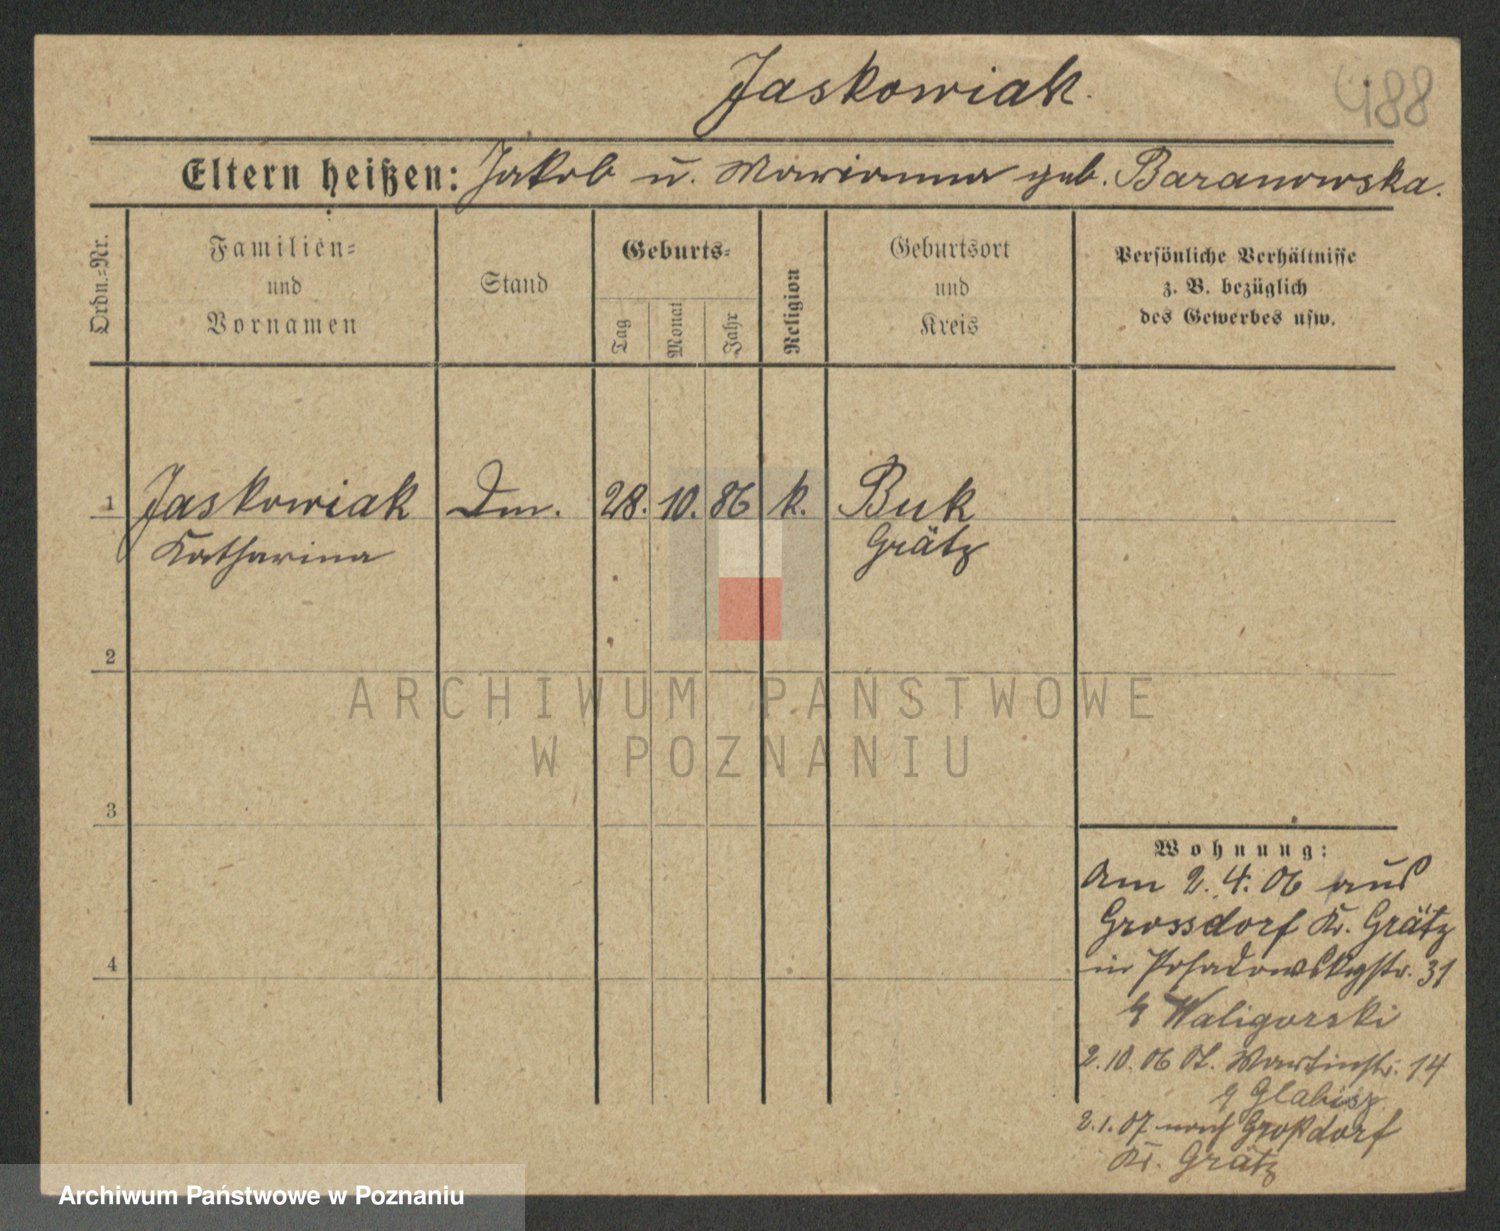 Jaskowiak.
488
Eltern heißen: Jakob u. Marianna geb. Baranowska.
Ordn.=Nr.
Familien=
und
Vornamen
Stand
Geburts=
Tag
Monat
Jahr
Religion
Geburtsort
und
Kreis
Persönliche Verhältnisse
z. B. bezüglich
des Gewerbes usw.
1 Jaskowiak Dm. 28. 10. 86 k. Buk
Katharina Grätz
2
ARCHIWUM PAŃSTWOWE
W POZNANIU
3
Wohnung:
Am 2. 4. 06 aus
Grossdorf Kr. Grätz
in Posadowskystr. 31
Waligorski
4
2. 10. 06 Martinstr. 14
Glabisz
2. 1. 07 nach Großdorf
Kr. Grätz
Archiwum Państwowe w Poznaniu